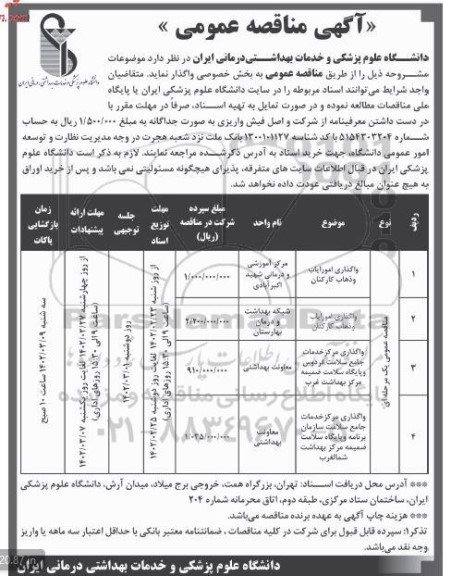 «آگهی مناقصه عمومی»
دانشگاه علوم پزشکی و خدمات بهداشتی درمانی ایران
دانشگاه علوم پزشکی و خدمات بهداشتی‌درمانی ایران در نظر دارد موضوعات
مشروحه ذیل را از طریق مناقصه عمومی به بخش خصوصی واگذار نماید. متقاضیان
واجد شرایط می‌توانند اسناد مربوطه را در سایت دانشگاه علوم پزشکی ایران یا پایگاه
ملی مناقصات مطالعه نموده و در صورت تمایل به تهیه اسناد، صرفاً در مهلت مقرر با
در دست داشتن معرفینامه از شرکت و اصل فیش واریزی به صورت جداگانه به مبلغ ۱/۵۰۰/۰۰۰ ریال به حساب
شماره ۵۱۵۴۳۰۳۲۰۴ با کد شناسه ۱۳۰۰۱۰۱۱۲۷ بانک ملت نزد شعبه هجرت در وجه مدیریت نظارت و توسعه
امور عمومی دانشگاه، جهت خرید اسناد به آدرس ذکرشده مراجعه نمایند. لازم به ذکر است دانشگاه علوم
پزشکی ایران در قبال اطلاعات سایت های متفرقه، پذیرای هیچگونه مسئولیتی نمی باشد و پس از خرید اوراق
به هیچ عنوان مبالغ دریافتی عودت داده نخواهد شد.
ردیف
نوع
موضوع
نام واحد
مبلغ سپرده شرکت در مناقصه (ریال)
مهلت توزیع اسناد
جلسه توجیهی
مهلت ارائه پیشنهادات
زمان بازگشایی پاکات
مناقصه عمومی یک مرحله‌ای
۱
واگذاری امورایاب وذهاب کارکنان
مرکز آموزشی و درمانی شهید اکبرآبادی
۱/۰۰۰/۰۰۰/۰۰۰
۲
واگذاری امورایاب وذهاب کارکنان
شبکه بهداشت و درمان بهارستان
۲/۲۰۰/۰۰۰/۰۰۰
۳
واگذاری مرکزخدمات جامع سلامت فردوس وپایگاه سلامت ضمیمه مرکز بهداشت غرب
معاونت بهداشتی
۹۱۰/۰۰۰/۰۰۰
۴
واگذاری مرکزخدمات جامع سلامت سازمان برنامه وپایگاه سلامت ضمیمه مرکز بهداشت شمالغرب
معاونت بهداشتی
۱/۰۳۵/۰۰۰/۰۰۰
از روز شنبه ۱۴۰۲/۰۲/۲۳ لغایت روز ۱۴۰۲/۰۲/۲۵ (ساعت ۹ الی ۱۵:۳۰ روزهای اداری)
روز دوشنبه ۱۴۰۲/۰۳/۰۱
از روز چهارشنبه ۱۴۰۲/۰۲/۲۷ لغایت روز یکشنبه ۱۴۰۲/۰۳/۰۷ (ساعت ۹ الی ۱۵:۳۰ روزهای اداری)
سه شنبه ۱۴۰۲/۰۳/۰۹ ساعت ۱۰ صبح
پایگاه اطلاع رسانی مناقصه و مزایده
۰۲۱-۸۸۳۴۹۶۷۰
*** آدرس محل دریافت اسناد: تهران، بزرگراه همت، خروجی برج میلاد، میدان آرش، دانشگاه علوم پزشکی
ایران، ساختمان ستاد مرکزی، طبقه دوم، اتاق محرمانه شماره ۲۰۴
*** هزینه چاپ آگهی به عهده برنده مناقصه می‌باشد.
تذکر۱: سپرده قابل قبول برای شرکت در کلیه مناقصات، ضمانتنامه معتبر بانکی با حداقل اعتبار سه ماهه یا واریز
وجه نقد می‌باشد.
دانشگاه علوم پزشکی و خدمات بهداشتی درمانی ایران